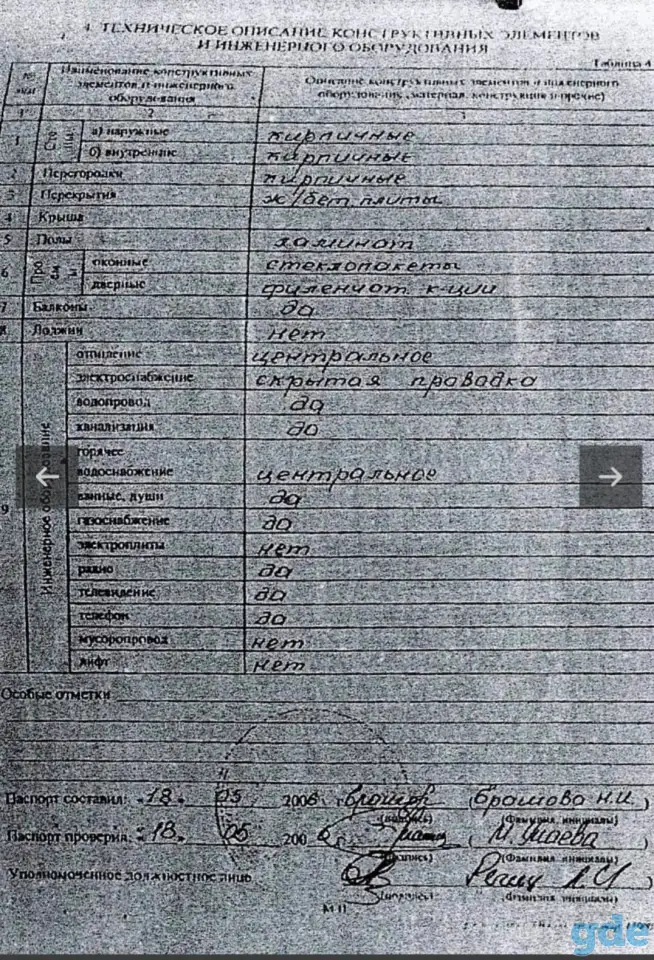 4. ТЕХНИЧЕСКОЕ ОПИСАНИЕ КОНСТРУКТИВНЫХ ЭЛЕМЕНТОВ
И ИНЖЕНЕРНОГО ОБОРУДОВАНИЯ
Таблица 4
Наименование конструктивных элементов и инженерного оборудования
Описание конструктивных элементов и инженерного оборудования (материал, конструкция и прочие)
1 2 3
1 а) наружные кирпичные
б) внутренние кирпичные
2 Перегородки кирпичные
3 Перекрытия ж/бет. плиты
4 Крыша
5 Полы ламинат
6 Проемы оконные стеклопакеты
дверные филенчат. к-ции
7 Балконы да
8 Лоджии нет
9 Инженерное оборудование
отопление центральное
электроснабжение скрытая проводка
водопровод да
канализация да
горячее
водоснабжение центральное
ванные, души да
газоснабжение да
электроплиты нет
радио да
телевидение да
телефон да
мусоропровод нет
лифт нет
Особые отметки
Паспорт составил: «18» 05 2006 г.
(подпись) (Фамилия, инициалы)
Паспорт проверил: «18» 05 2006
(подпись) (Фамилия, инициалы)
Уполномоченное должностное лицо
(подпись) (фамилия, инициалы)
М.П.
gde